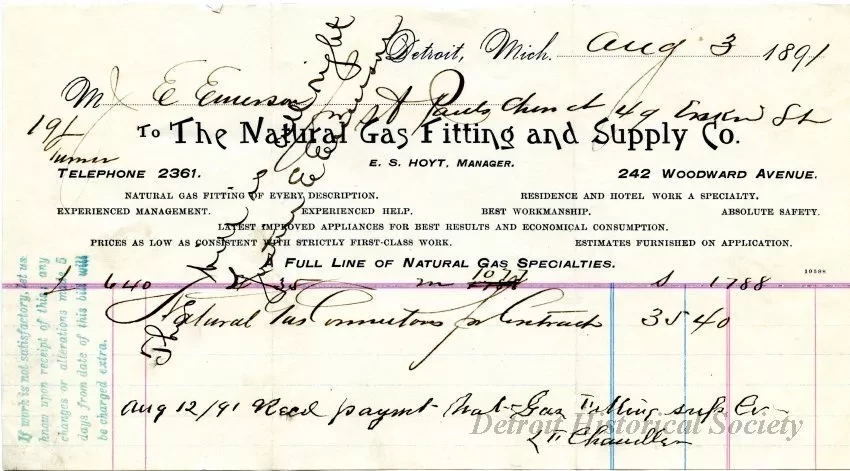 Detroit, Mich. Aug 3 1891
M E Emerson
St Pauls Church 49 Erskin St
To The Natural Gas Fitting and Supply Co.
E. S. HOYT, MANAGER.
TELEPHONE 2361. 242 WOODWARD AVENUE.
NATURAL GAS FITTING OF EVERY DESCRIPTION. RESIDENCE AND HOTEL WORK A SPECIALTY.
EXPERIENCED MANAGEMENT. EXPERIENCED HELP. BEST WORKMANSHIP. ABSOLUTE SAFETY.
LATEST IMPROVED APPLIANCES FOR BEST RESULTS AND ECONOMICAL CONSUMPTION.
PRICES AS LOW AS CONSISTENT WITH STRICTLY FIRST-CLASS WORK. ESTIMATES FURNISHED ON APPLICATION.
A FULL LINE OF NATURAL GAS SPECIALTIES.
10588
640 35 m 1077 S 1788
Natural Gas Connections pr Contract 35 40
Aug 12/91 Recd paymt Nat Gas Fitting sup Co
Chandler
If work is not satisfactory, let us
know upon receipt of this; any
changes or alterations made 5
days from date of this bill will
be charged extra.
Detroit Historical Society